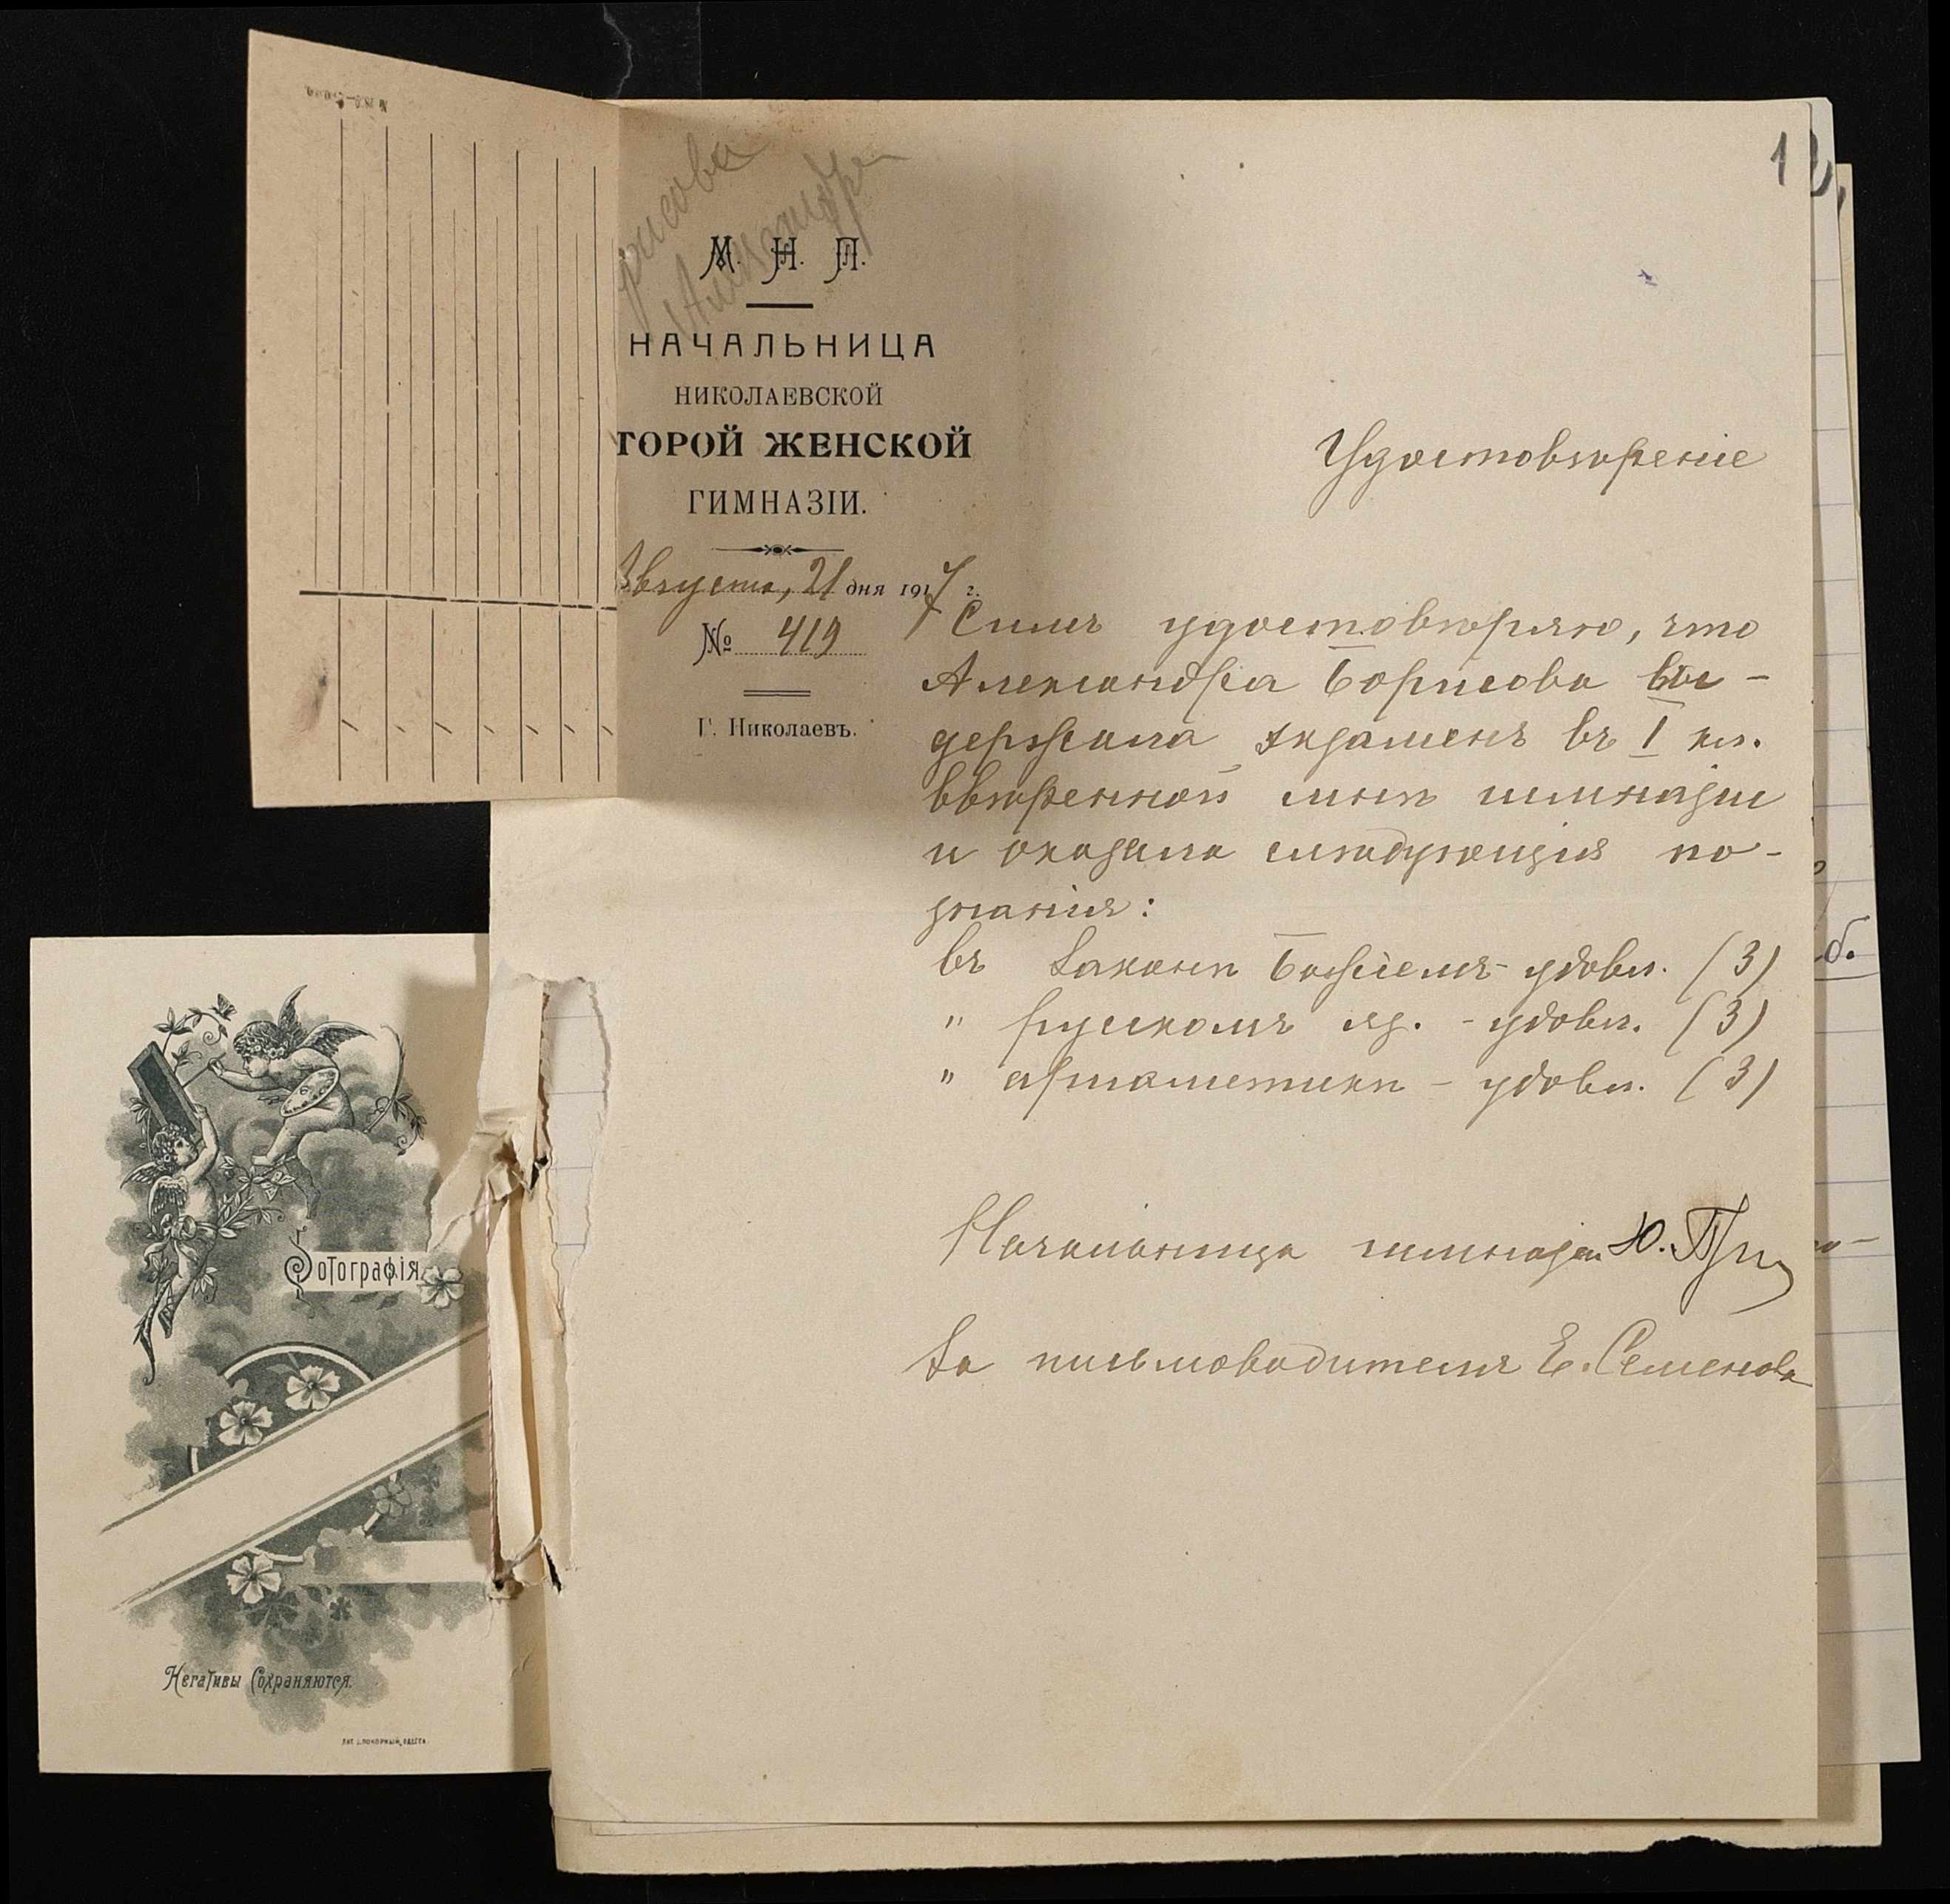 12
рисова
Александра
М. Н. П.
НАЧАЛЬНИЦА
НИКОЛАЕВСКОЙ
ТОРОЙ ЖЕНСКОЙ
ГИМНАЗІИ.
Августа, 21 дня 1917 г.
№ 419
Г. Николаевъ.
Удостовѣреніе
Симъ удостовѣряю, что
Александра Борисова вы-
держала экзаменъ въ I кл.
ввѣренной мнѣ гимназіи
и оказала слѣдующія по-
знанія:
въ Законѣ Божіемъ - удовл. (3)
" русскомъ яз. - удовл. (3)
" ариѳметикѣ - удовл. (3)
Начальница гимназіи Ю.
За письмоводителя Е. Семенова
б.
Фотографія
Негативы Сохраняются.